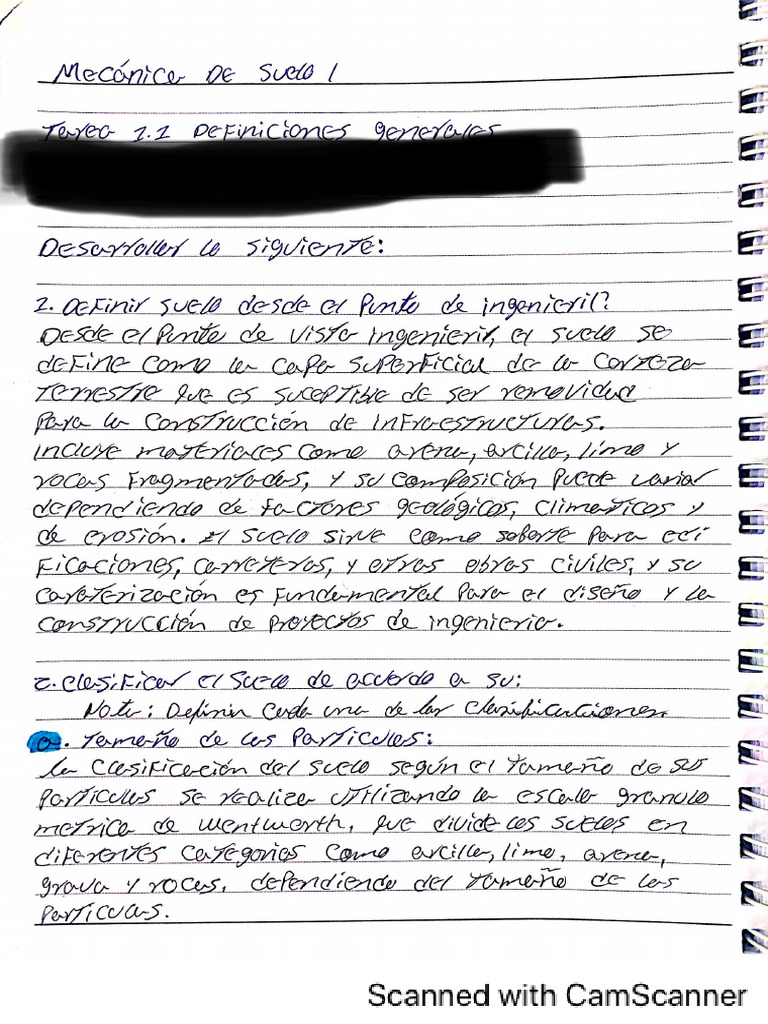 Mecánica DE Suelo 1
Tarea 1.1 Definiciones generales
Desarrollar lo siguiente:
1. Definir suelo desde el Punto de ingenieril?
Desde el Punto de vista ingenieril, el suelo se
define como la capa superficial de la corteza
terrestre que es suceptible de ser removidad
Para la construcción de infraestructuras.
Incluye materiales como arena, arcilla, limo y
rocas fragmentadas, y su composición puede variar
dependiendo de factores geológicos, climaticos y
de erosión. El suelo sirve como soborte para edi
ficaciones, carreteras, y otras obras civiles, y su
caraterización es fundamental para el diseño y la
construcción de proyectos de ingenieria.
2. Clasificar el suelo de acuerdo a su:
Nota: Definir cada una de las clasificaciones.
a. Tamaño de las Particulas:
la clasificación del suelo según el tamaño de sus
particulas se realiza utilizando la escala granulo
metrica de wentworth, que divide los suelos en
diferentes categorias como arcilla, limo, arena,
grava y rocas, dependiendo del tamaño de las
particulas.
Scanned with CamScanner